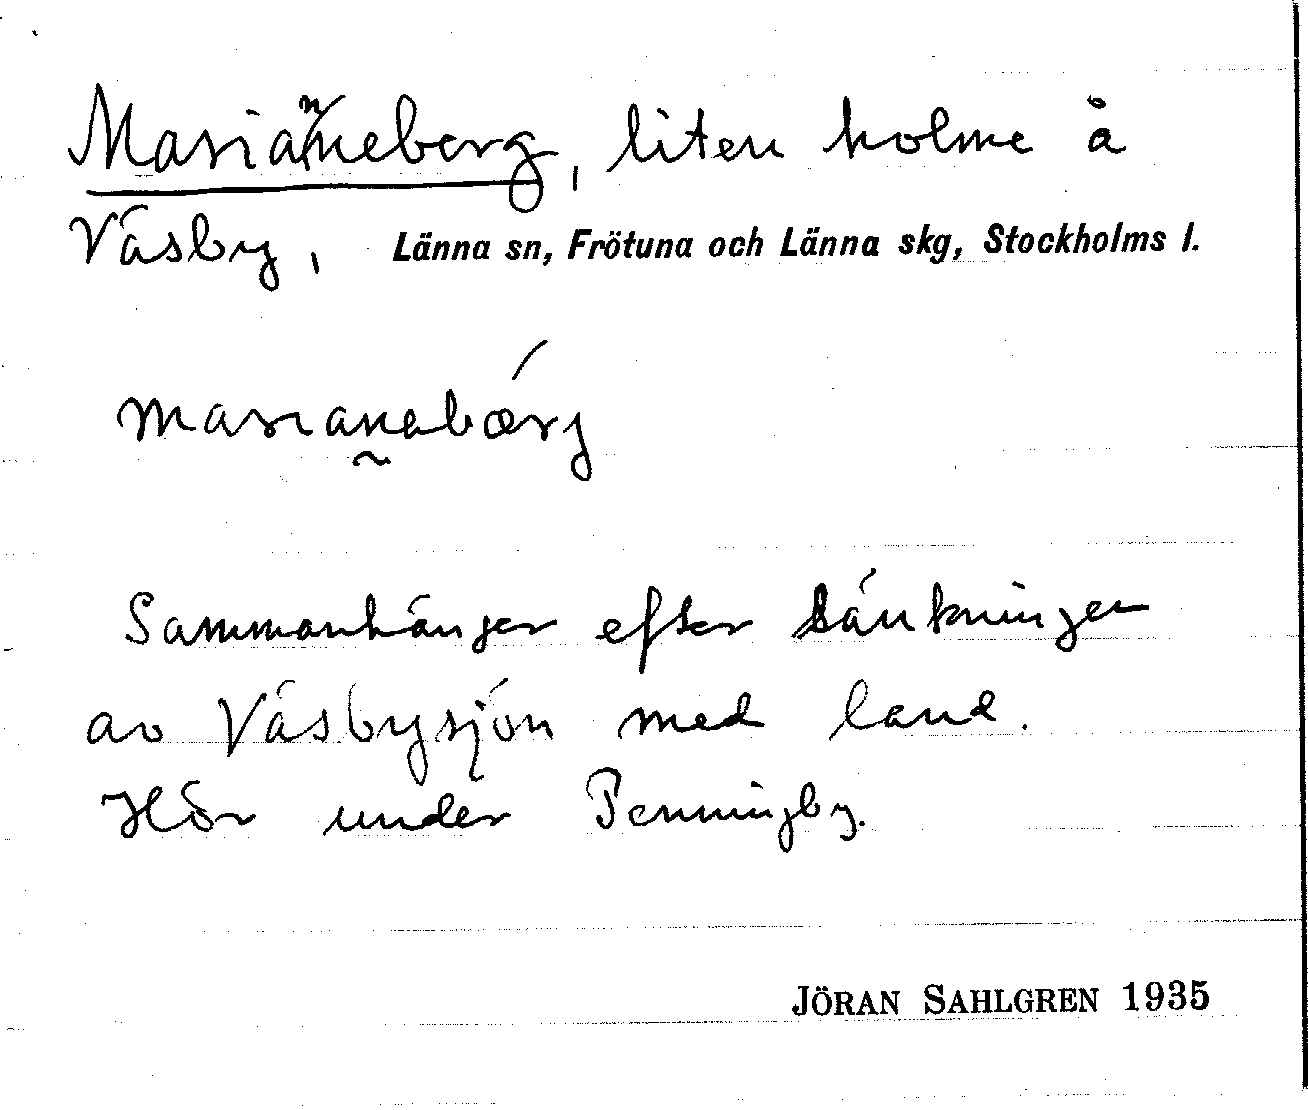 Marianneberg, liten holme å
Väsby, Länna sn, Frötuna och Länna skg, Stockholms l.
marianabærj
Sammanhänger efter sänkningen
av Väsbysjön med land.
Hör under Penningby.
JÖRAN SAHLGREN 1935